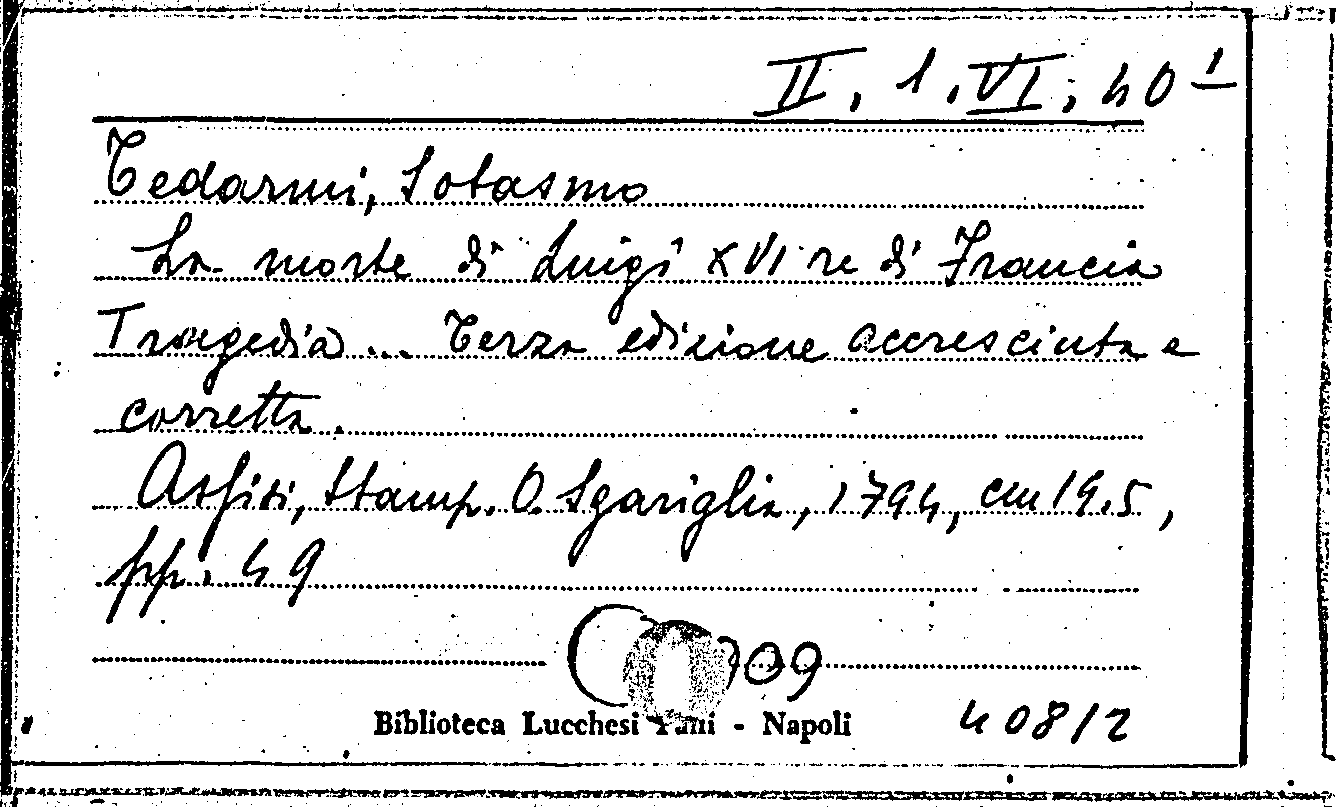 II. 1. VI. 40 1
Tedarmi, Sotasmo
La morte di Luigi XVI re di Francia
Tragedia... Terza edizione accresciuta e
corretta.
Assisi, Stamp. O. Sgariglia, 1794, cm 19.5,
pp. 49
09
Biblioteca Lucchesi - Napoli
408/2